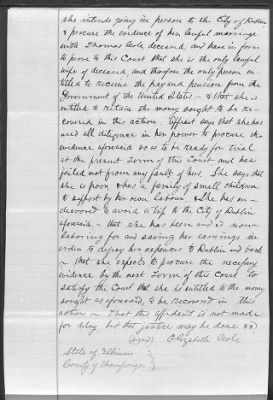 she intends going in person to the City of Dublin
& procure the evidence of her lawful marriage
with Thomas Cole deceased and have in form
to prove to this Court that she is the only lawful
wife of deceased, and therefore the only person en-
titled to receive the pay and pension from the
Government of the United States - & that she is
entitled to retain the money sought to be re-
covered in this action. Affiant says that she has
used all diligence in her power to procure the
evidence aforesaid so as to be ready for trial
at the present Term of this Court and has
failed not from any fault of hers. She says that
she is poor & has a family of small children
to support by her own labour & she has en-
deavored to avoid a trip to the City of Dublin
aforesaid - that she has been and is now
laboring for and saving her earnings in
order to defray her expenses to Dublin and back
- that she expects to procure the necessary
evidence by the next Term of this Court to
satisfy the Court that she is entitled to the money
sought as aforesaid, to be recovered in this
action - That this affidavit is not made
for delay, but that justice may be done &c
(signed) Elizabeth Cole
State of Illinois }
County of Champaign }